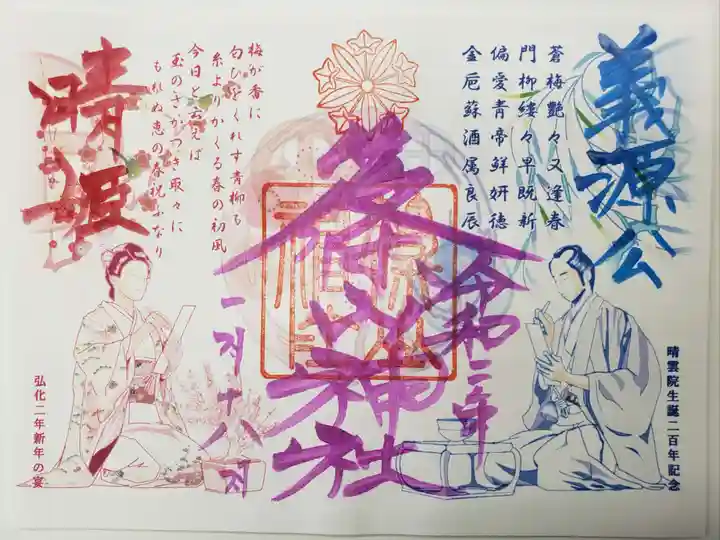 義源公
蒼梅艶々又逢春
門柳縷々早既新
偏愛青帝鮮妍徳
金巵蘇酒属良辰
晴雲院生誕二百年記念
篠山神社
令和二年
一月十八日
梅が香に
匂ひをくれす青柳も
糸よりかくる春の初風
今日といえば
玉のさかつき取々に
もれぬ恵の春祝ふなり
晴姫
弘化二年新年の宴